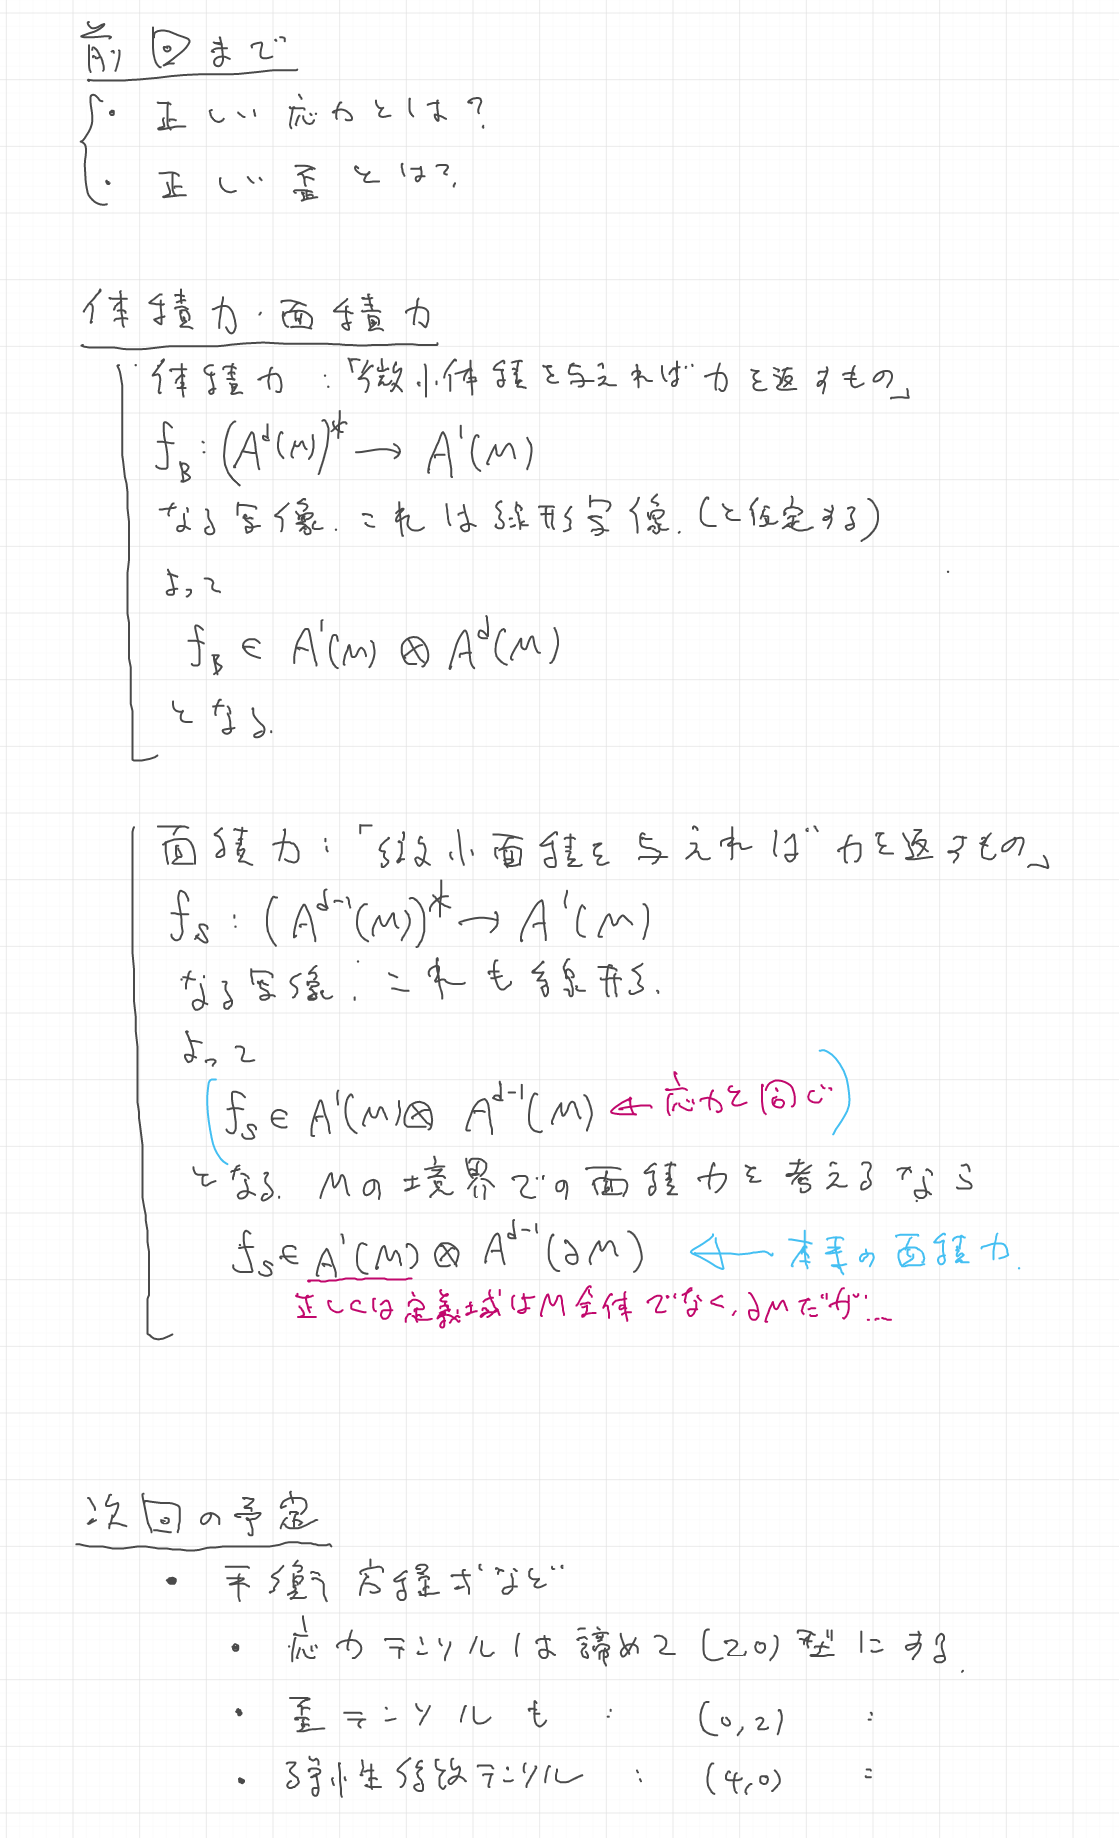 前回まで
・ 正しい応力とは?
・ 正しい歪とは?
体積力・面積力
体積力:「微小体積を与えれば力を返すもの」
f_B : (A^d(M))^* → A^1(M)
なる写像. これは線形写像.(と仮定する)
よって
f_B ∈ A^1(M) ⊗ A^d(M)
となる.
面積力:「微小面積を与えれば力を返すもの」
f_S : (A^{d-1}(M))^* → A^1(M)
なる写像. これも線形.
よって
(f_S ∈ A^1(M) ⊗ A^{d-1}(M) ← 応力と同じ)
となる. Mの境界での面積力を考えるなら
f_S ∈ A^1(M) ⊗ A^{d-1}(∂M) ← 本来の面積力.
正しくは定義域はM全体でなく、∂Mだが…
次回の予定
・ 平衡方程式など
・ 応力テンソルは諦めて (2,0) 型にする.
・ 歪テンソルも : (0,2) :
・ 弾性係数テンソル : (4,0) :